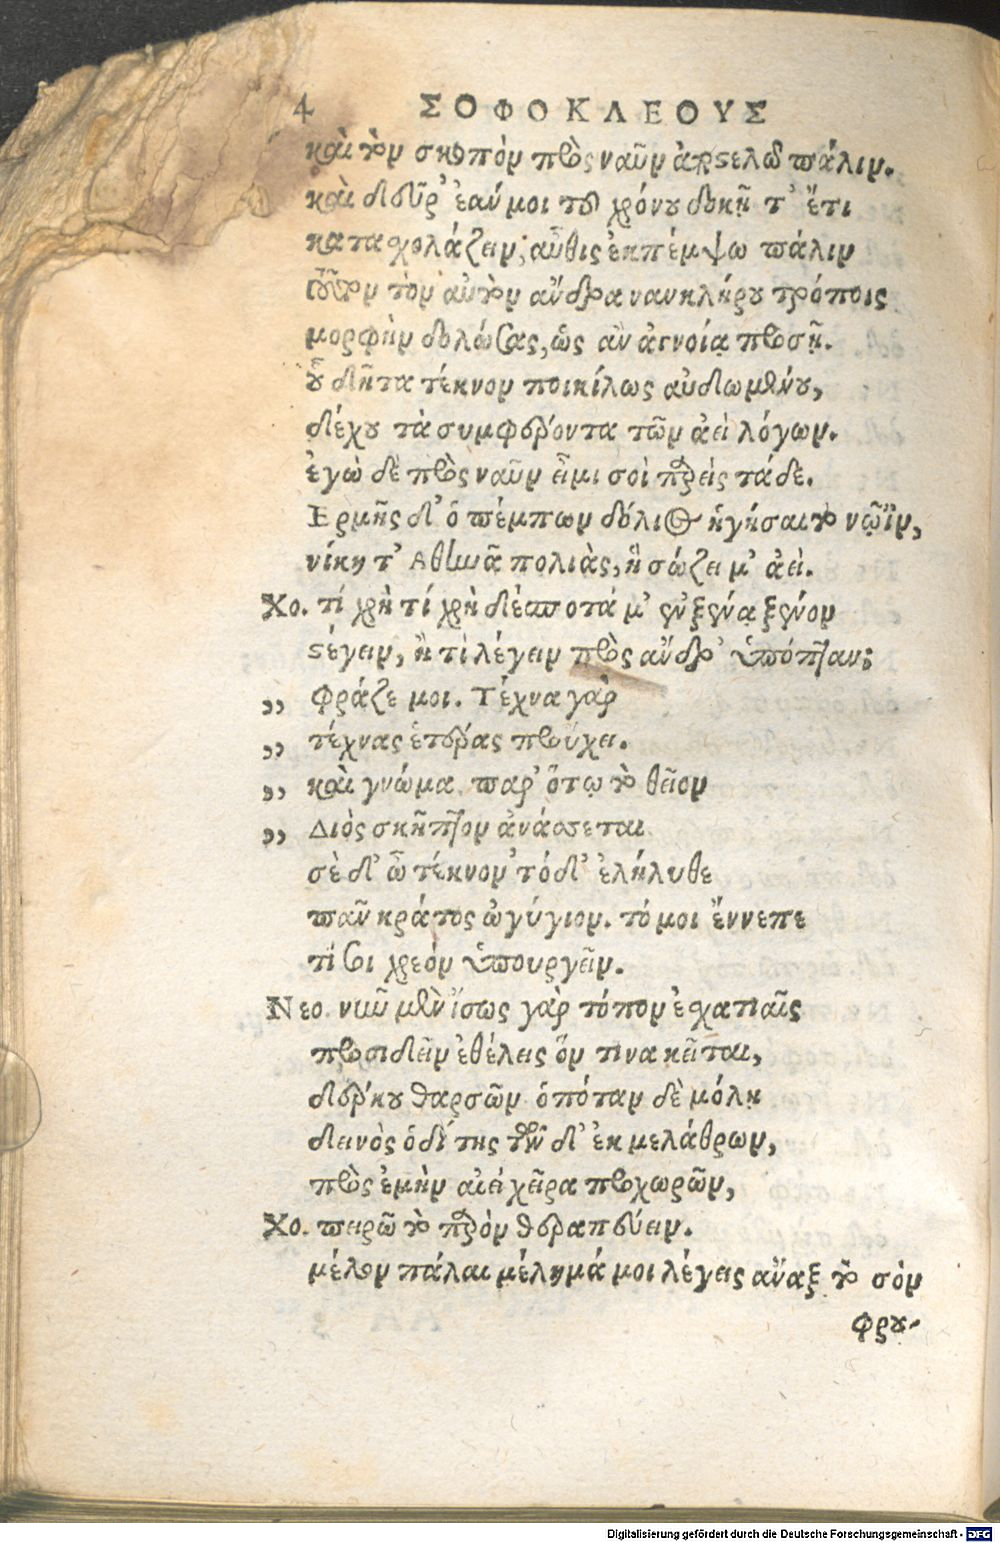 4 ΣΟΦΟΚΛΕΟΥΣ
καὶ τὸν σκοπὸν πρὸς ναῦν ἀποστελῶ πάλιν.
καὶ δεῦρ' ἐάν μοι τοῦ χρόνου δοκῆτ' ἔτι
κατασχολάζειν, αὖθις ἐκπέμψω πάλιν
τοῦτον τὸν αὐτὸν ἄνδρα ναυκλήρου τρόποις
μορφὴν δολώσας, ὡς ἂν ἀγνοίᾳ προσῇ.
οὗ δῆτα τέκνον ποικίλως αὐδωμένου,
δέχου τὰ συμφέροντα τῶν ἀεὶ λόγων.
ἐγὼ δὲ πρὸς ναῦν εἶμι σοὶ παρεὶς τάδε.
Ερμῆς δ' ὁ πέμπων δόλιος ἡγήσαιτο νῷϊν,
νίκη τ' Αθηνᾶ πολιὰς, ἣ σώζει μ' ἀεί.
Χο. τί χρὴ τί χρὴ δέσποτά μ' ἐν ξένᾳ ξένον
στέγειν, ἢ τί λέγειν πρὸς ἄνδρ' ὑπόπταν;
,, Φράζε μοι. Τέχνα γὰρ
,, τέχνας ἑτέρας προὔχει.
,, καὶ γνώμα παρ' ὅτῳ τὸ θεῖον
,, Διὸς σκῆπτρον ἀνάσσεται
σὲ δ' ὦ τέκνον τόδ' ἐλήλυθε
πᾶν κράτος ὠγύγιον. τό μοι ἔννεπε
τί σοι χρεὸν ὑπουργεῖν.
Νεο. νῦν μὲν ἴσως γὰρ τόπον ἐσχατιαῖς
προσιδεῖν ἐθέλεις ὅν τινα κεῖται,
δέρκου θαρσῶν ὁπόταν δὲ μόλῃ
δεινὸς ὁδίτης τῶνδ' ἐκ μελάθρων,
πρὸς ἐμὴν αἰεὶ χεῖρα προχωρῶν,
Χο. πειρῶ τὸ παρὸν θεραπεύειν.
μέλον πάλαι μέλημά μοι λέγεις ἄναξ τὸ σὸν
φρου-
Digitalisierung gefördert durch die Deutsche Forschungsgemeinschaft - DFG